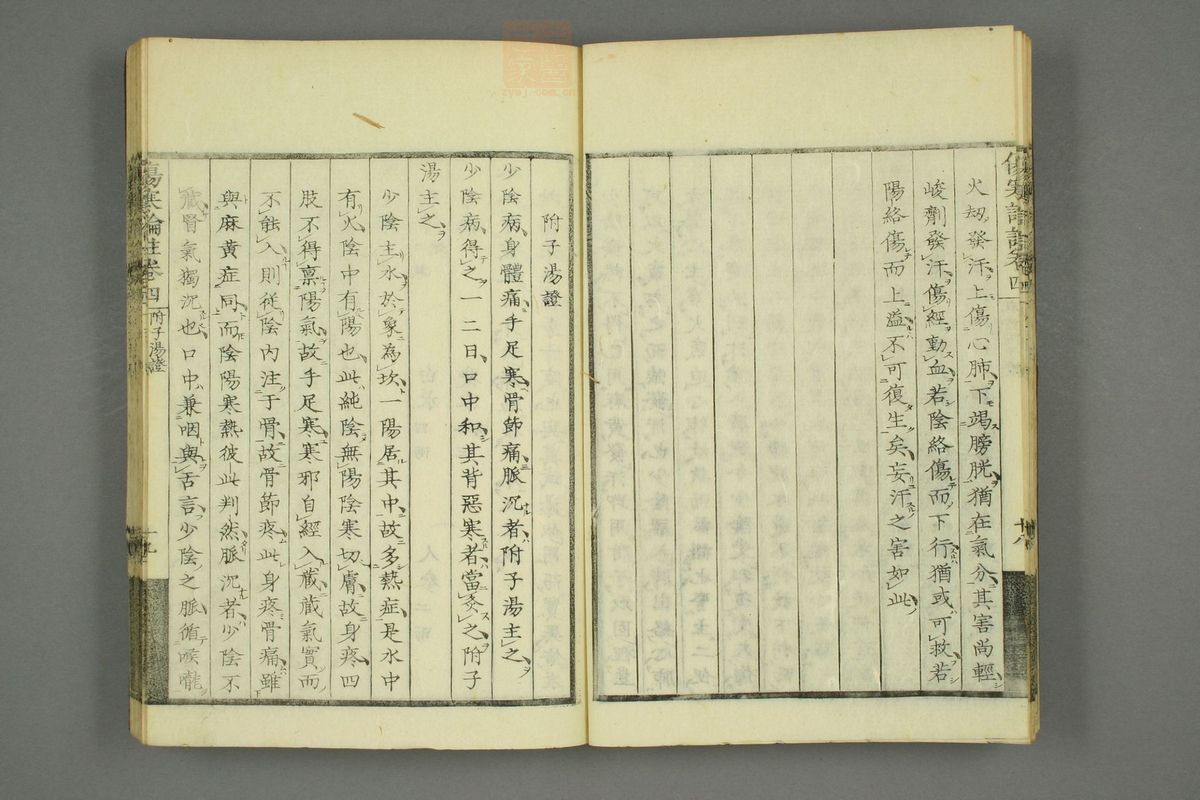 火刼發汗上傷心肺下竭膀胱猶在氣分其害尚輕
峻劑發汗傷經動血若陰絡傷而下行猶或可救若
陽絡傷而上溢不可復生矣妄汗之害如此
十八
附子湯證
少陰病身體痛手足寒骨節痛脈沉者附子湯主之
少陰病得之一二日口中和其背惡寒者當灸之附子
湯主之
少陰主水於象為坎一陽居其中故多熱症是水中
有火陰中有陽也此純陰無陽陰寒切膚故身疼四
肢不得禀陽氣故手足寒寒邪自經入藏藏氣實而
不能入則從陰內注于骨故骨節疼此身疼骨痛雖
與麻黄症同而陰陽寒熱彼此判然脈沉者少陰不
藏腎氣獨沉也口中兼咽與舌言少陰之脈循喉嚨
傷寒論註卷四
附子湯證
十九
zysj.com.cn